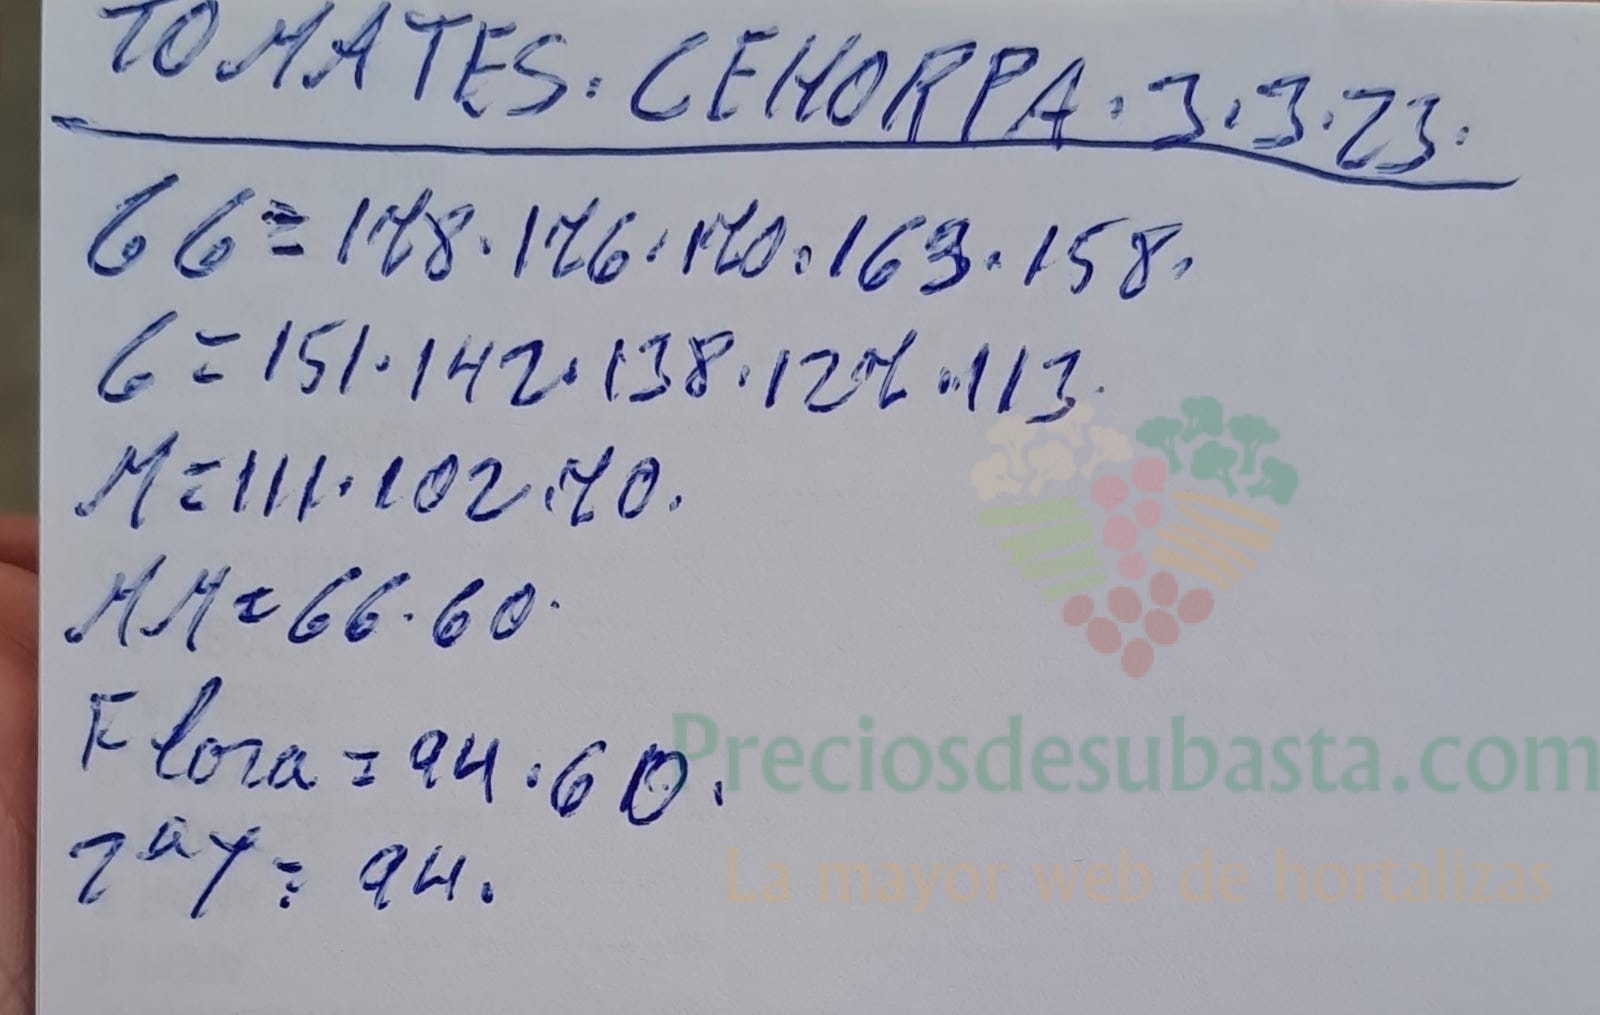 TOMATES. CEHORPA. 3.3.23.
GG = 178. 176. 170. 163. 158.
G = 151. 142. 138. 127. 113.
M = 111. 102. 70.
MM = 66. 60.
Flora = 94. 60.
2ªY = 94.
Preciosdesubasta.com
La mayor web de hortalizas